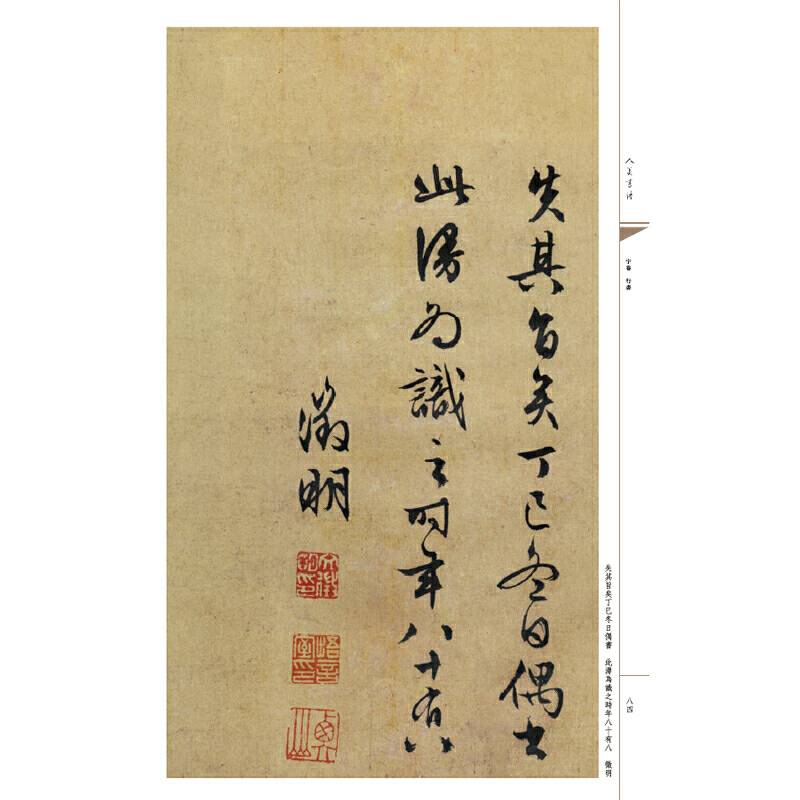 人美書譜
宇卷 行書
八四
失其旨矣丁巳冬日偶書 此漫為識之時年八十有八 徵明
失其旨矣丁巳冬日偶書
此漫為識之時年八十有八
徵明
文徵明印
悟言室印